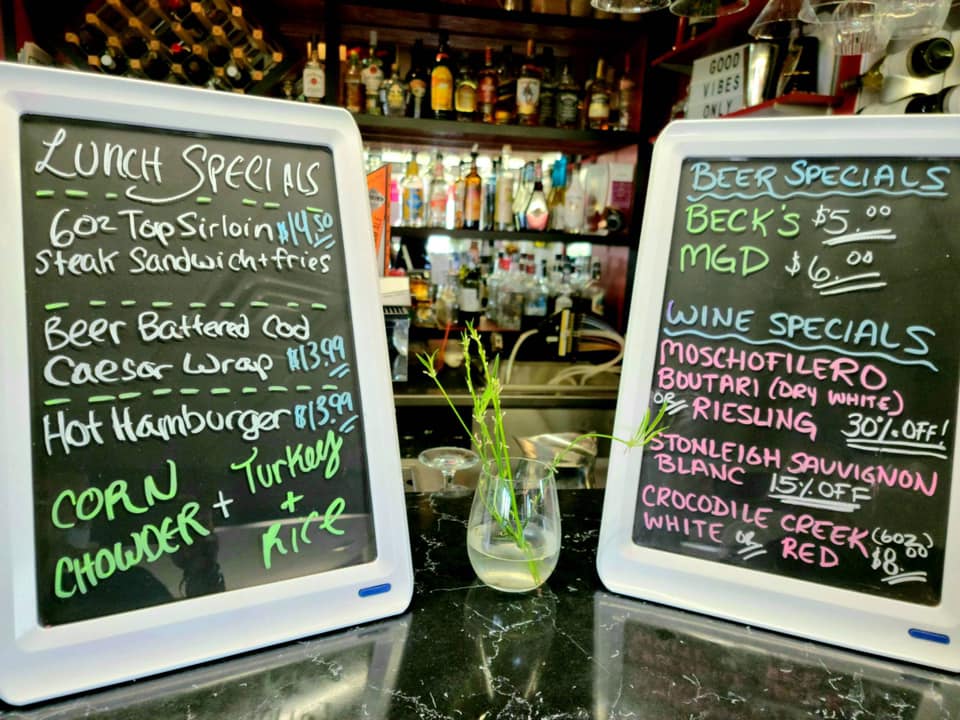 LUNCH SPECIALS
6oz Top Sirloin $14.50
Steak Sandwich + fries
Beer Battered Cod
Caesar Wrap $13.99
Hot Hamburger $13.99
CORN CHOWDER + Turkey + Rice
GOOD
VIBES
ONLY
BEER SPECIALS
BECK'S $5.00
MGD $6.00
WINE SPECIALS
MOSCHOFILERO
BOUTARI (DRY WHITE)
OR RIESLING 30% OFF!
STONLEIGH SAUVIGNON
BLANC 15% OFF
CROCODILE CREEK (6oz)
WHITE OR RED $8.00